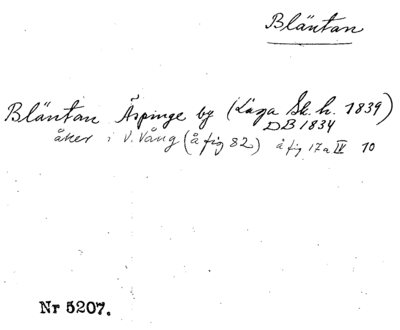 Bläntan
Bläntan Äspinge by (Laga Sk. h. 1839)
DB 1834
åker i V. Vång (å fig 82) å fig 17a IV 10
Nr 5207.